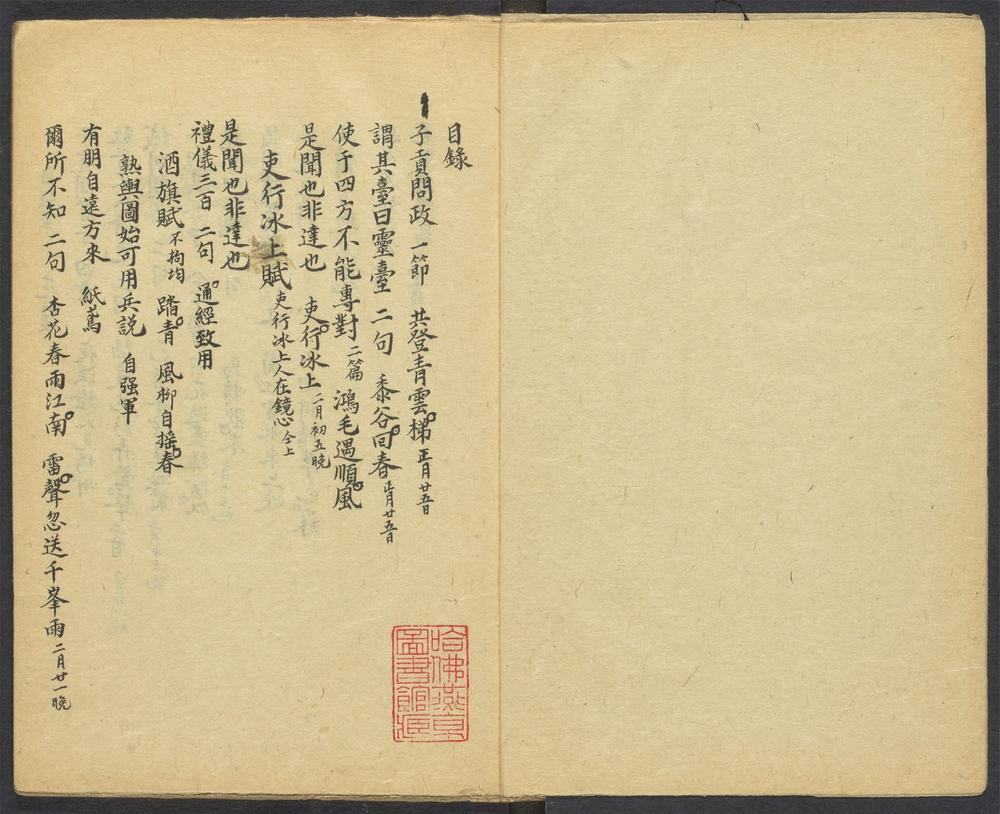 目錄
子貢問政 一節 共登青雲梯 正月廿五日
謂其臺曰靈臺 二句 黍谷回春 正月廿五日
使于四方不能專對 二篇 鴻毛遇順風
是聞也非達也 吏行冰上 二月初五晚
吏行冰上賦 吏行冰上人在鏡心 仝上
是聞也非達也
禮儀三百 二句 通經致用
酒旗賦 不拘均 踏青 風柳自搖春
熟輿圖始可用兵説 自强軍
有朋自遠方來 紙鳶
爾所不知 二句 杏花春雨江南 雷聲忽送千峯雨 二月廿一晚
哈佛燕京
圖書館藏